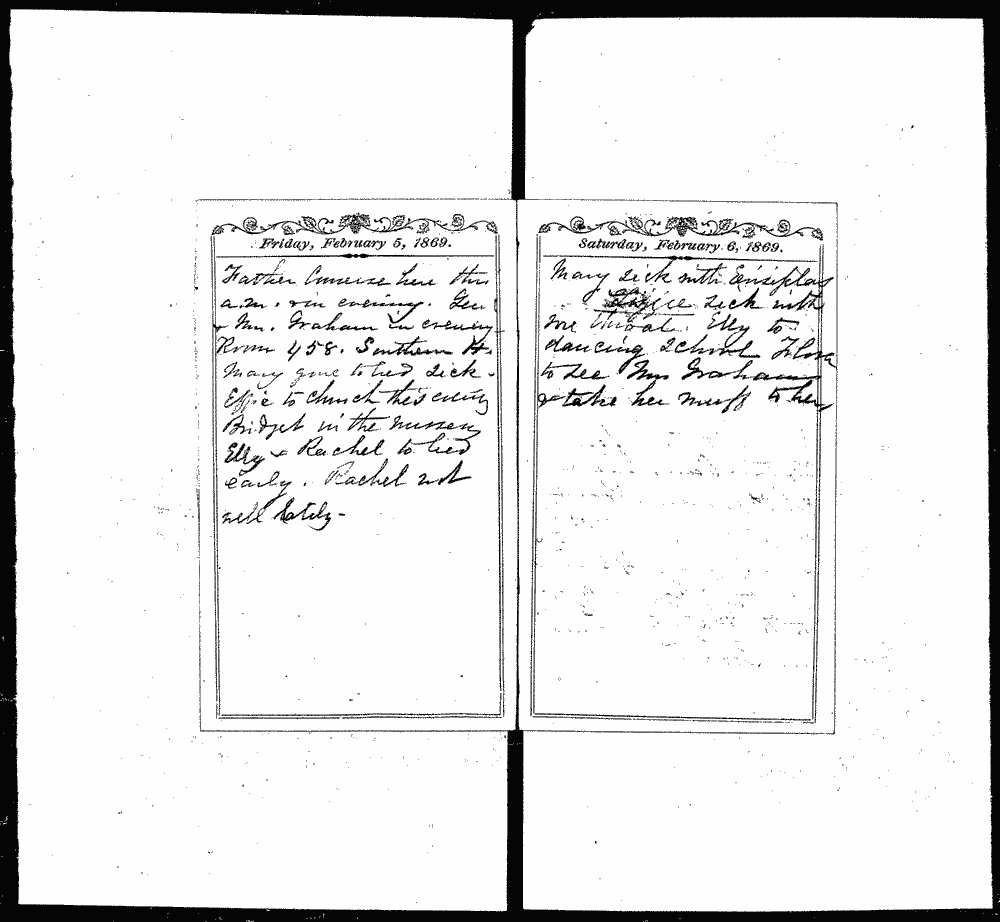 Friday, February 5, 1869.
Father Converse here this
a.m. & in evening. Gen
& Mrs. Graham in evening
Room 458. Southern H.
Mary gone to bed sick -
Effie to church this evening
Bridget in the nursery
Elly & Rachel to bed
early. Rachel not
well lately -
Saturday, February 6, 1869.
Mary sick with Erisiplas
Lizzie sick with
sore throat. Elly to
dancing school
to see Mrs Graham
& take her muff to her